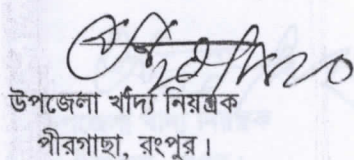 উপজেলা খাদ্য নিয়ন্ত্রক
পীরগাছা, রংপুর।